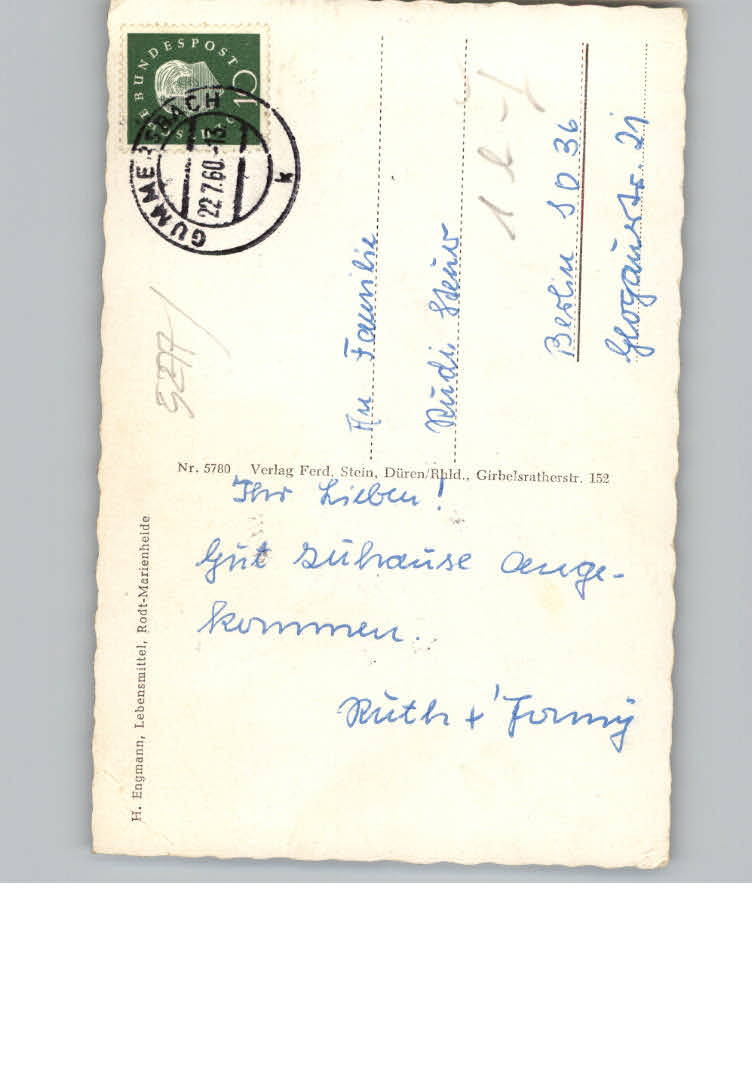 DEUTSCHE BUNDESPOST
10
GUMMERSBACH
22.7.60.-13
k
An Familie
Rudi
Berlin SO 36
Glogauerstr. 21
5277
Nr. 5780 Verlag Ferd. Stein, Düren/Rhld., Girbelsratherstr. 152
H. Engmann, Lebensmittel, Rodt-Marienheide
Ihr Lieben!
Gut zuhause ange-
kommen.
Ruth +